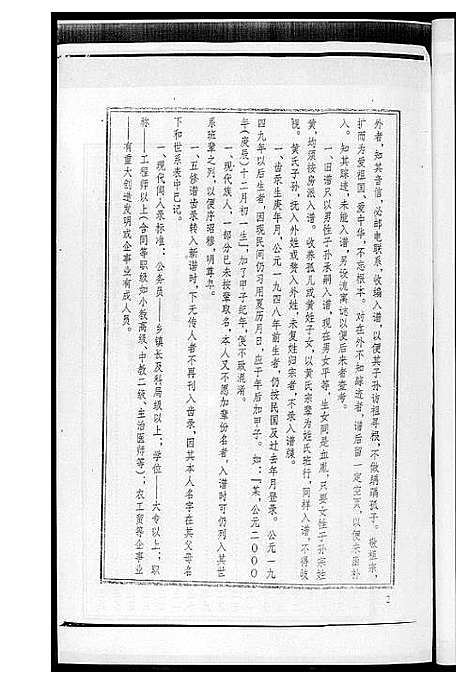 外者，知其音信，必邮电联系，收编入谱，以便其子孙访祖寻根，不做瞒瞒孤子。敬祖宗，
扩而为爱祖国，爱中华，不忘根本。对在外不知踪迹者，谱后留一定空页，以便来届补
入。知其踪迹，未能入谱，另设流寓访以便后来者查考。
一、旧谱只以男性子孙承嗣入谱，现在男女平等，生女同是血胤，只要女性子孙宗姓
黄，均须按房派入谱。收养孤儿或黄姓子女，以黄氏宗辈为姓氏班行，同样入谱，不得歧
视。黄氏子孙，抚入外姓或赘入外姓，未复姓归宗者，不录入谱牒。
一、齿录生庚年月，公元一九四八年前生者，仍按民国及过去年月登录。公元一九
四九年以后生者，因现民间仍习用夏历月日，应于年后加甲子。如：『某，公元二〇〇〇
年(庚辰)十二月初一生』，加了甲子纪年，便不致混淆。
一、现代族人，一部分已未按辈取名，本人又不愿加辈份名者，入谱时可仍列入其世
系班辈之列，以便序昭穆，明尊卑。
一、五修谱齿录转入新谱时，下无传人者不再刊入齿录，因其本人名字在其父母名
下和世系表中已记。
一、现代闻人录标准：公务员——乡镇长及科局级以上；学位——大专以上；职
称——工程师以上(含同等职级如小教高级、中教二级、主治医师等)；农工贸等企事业
——有重大创造发明或企事业有成人员。